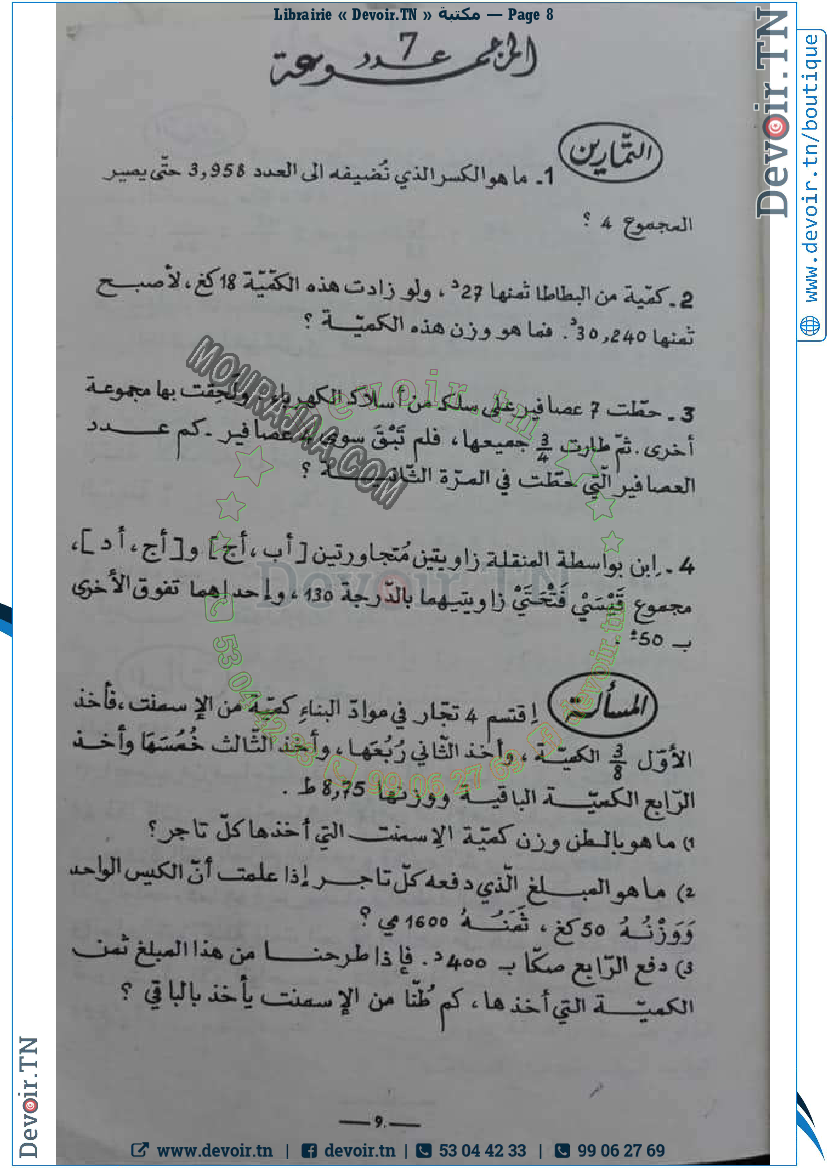 Librairie « Devoir.TN » مكتبة — Page 8
المجموعة عدد 7
التمارين
1ـ ما هو الكسر الذي نُضيفه الى العدد 3,958 حتّى يصير
المجموع 4 ؟
2ـ كميّة من البطاطا ثمنها 27د، ولو زادت هذه الكميّة 18 كغ، لأصبح
ثمنها 30,240د. فما هو وزن هذه الكميّة ؟
3ـ حطّت 7 عصافير على سلك من أسلاك الكهرباء، ولَحِقت بها مجموعة
أخرى. ثمّ طارت 3/4 جميعها، فلم تَبْقَ سوى 4 عصافير ـ كم عدد
العصافير الّتي حطّت في المرّة الثّانية ؟
4ـ اِبن بواسطة المنقلة زاويتين مُتجاورتين [أب، أج] و[أج، أد]،
مجموع قَيْسَيْ فَتْحَتَيْ زاويتيهما بالدّرجة 130، وإحداهما تفوق الأخرى
بـ 50°.
المسألة
إقتسم 4 تجّار في موادّ البناء كميّة من الإسمنت، فأخذ
الأوّل 3/8 الكميّة، وأخذ الثّاني رُبُعَها، وأخذ الثّالث خُمُسَهَا وأخذ
الرّابع الكميّة الباقية ووزنها 8,75 ط.
1) ما هو بالطن وزن كميّة الإسمنت التي أخذها كلّ تاجر؟
2) ما هو المبلغ الّذي دفعه كلّ تاجر إذا علمت أنّ الكيس الواحد
وَوَزْنُهُ 50 كغ، ثَمَنُهُ 1600 مي ؟
3) دفع الرّابع صكّا بـ 400د. فإذا طرحنا من هذا المبلغ ثمن
الكميّة التي أخذها، كم طُنّا من الإسمنت يأخذ بالباقي ؟
MOURAJAA.COM
Devoir.tn
Devoir.TN
53 04 42 33
99 06 27 69
devoir.tn
ـ 9 ـ
Devoir.TN
www.devoir.tn/boutique
Devoir.TN
www.devoir.tn | devoir.tn | 53 04 42 33 | 99 06 27 69